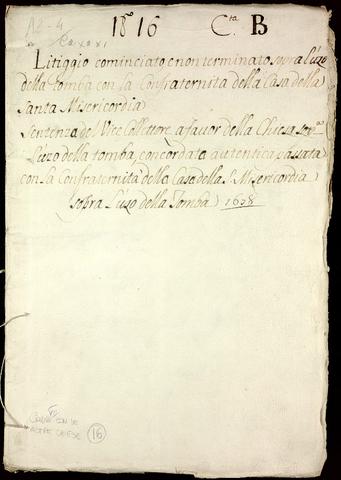 N2-4
18 16 Cta B
Litiggio cominciato, e non terminato sopra l'uzo
della tomba con la Confraternita della Casa della
Santa Misericordia
Sentenza del Vice Collettore a favor della Chiesa sopa
L'uzo della tomba, concordato autentica passata
con la Confraternita della Casa della S. Misericordia
sobra L'uzo della Tomba) 1638
CON LE
ALTRE CHIESE
16